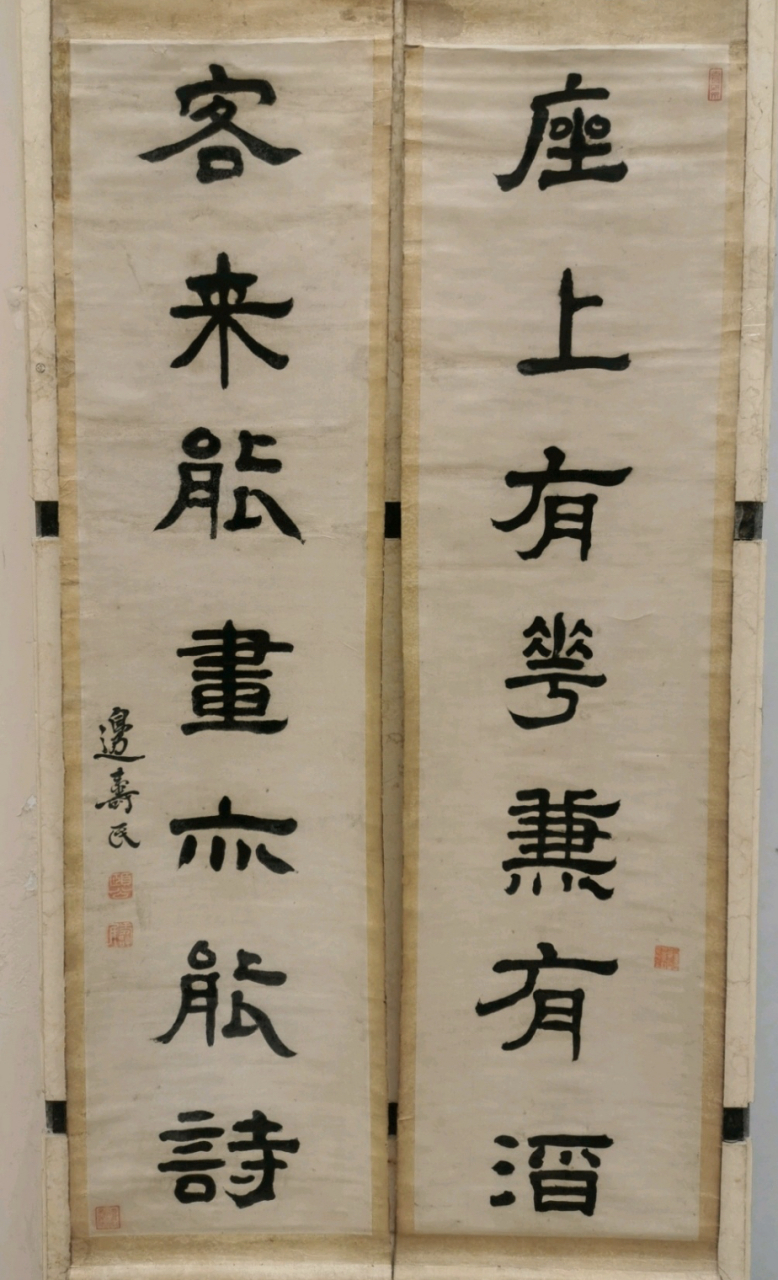 座上有花兼有酒
客来能畫亦能詩
邊壽民